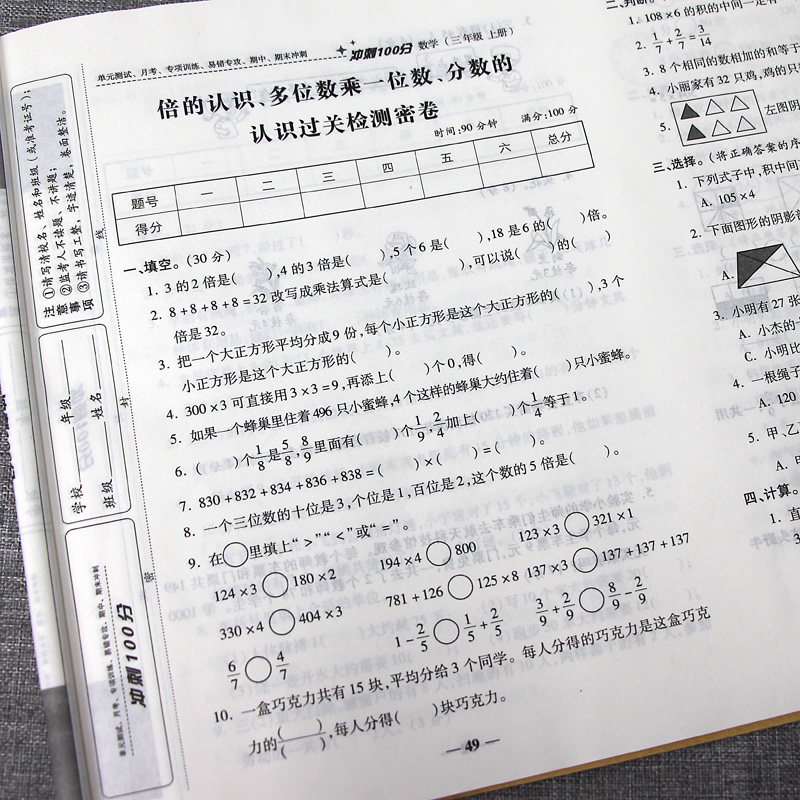 单元测试、月考、专项训练、易错专攻、期中、期末冲刺 冲刺100分 数学（三年级 上册）
倍的认识、多位数乘一位数、分数的
认识过关检测密卷
时间:90分钟 满分:100分
题号 一 二 三 四 五 六 总分
得分
一、填空。(30分)
1. 3的2倍是( ),4的3倍是( ),5个6是( ),18是6的( )倍。
2. 8+8+8+8=32改写成乘法算式是( ),可以说( )的( )
倍是32。
3. 把一个大正方形平均分成9份,每个小正方形是这个大正方形的( ),3个
小正方形是这个大正方形的( )。
4. 300×3可直接用3×3=9,再添上( )个0,得( )。
5. 如果一个蜂巢里住着496只小蜜蜂,4个这样的蜂巢大约住着( )只小蜜蜂。
6. ( )个1/8是5/8,8/9里面有( )个1/9,2/4加上( )个1/4等于1。
7. 830+832+834+836+838=( )×( )=( )。
8. 一个三位数的十位是3,个位是1,百位是2,这个数的5倍是( )。
9. 在○里填上“>”“<”或“=”。
124×3○180×2 194×4○800 123×3○321×1
330×4○404×3 781+126○125×8 137×3○137+137+137
6/7○4/7 1-2/5○1/5+2/5 3/9+2/9○8/9-2/9
10. 一盒巧克力共有15块,平均分给3个同学。每人分得的巧克力是这盒巧克
力的( )/( ),每人分得( )块巧克力。
— 49 —
二、判断。
1. 108×6的积的中间一定有
2. 1/7+2/7=3/14
3. 8个相同的数相加的和等于
4. 小丽家有32只鸡,鸡的只
5. 左图阴
三、选择。(将正确答案的序
1. 下列式子中,积中间
A. 105×4
2. 下面图形的阴影
A.
3. 小明有27张
A. 小杰的
C. 小明比
4. 一根绳子
A. 120
5. 甲、乙
A.
四、计算。
1. 直
注意事项
①请写清校名、姓名和班级(或准考证号);
②监考人不读题、不讲题;
③请书写工整,字迹清楚,卷面整洁。
学校
年级
班级
姓名
线
封
密
单元测试、月考、专项训练、易错专攻、期中、期末冲刺
冲刺100分